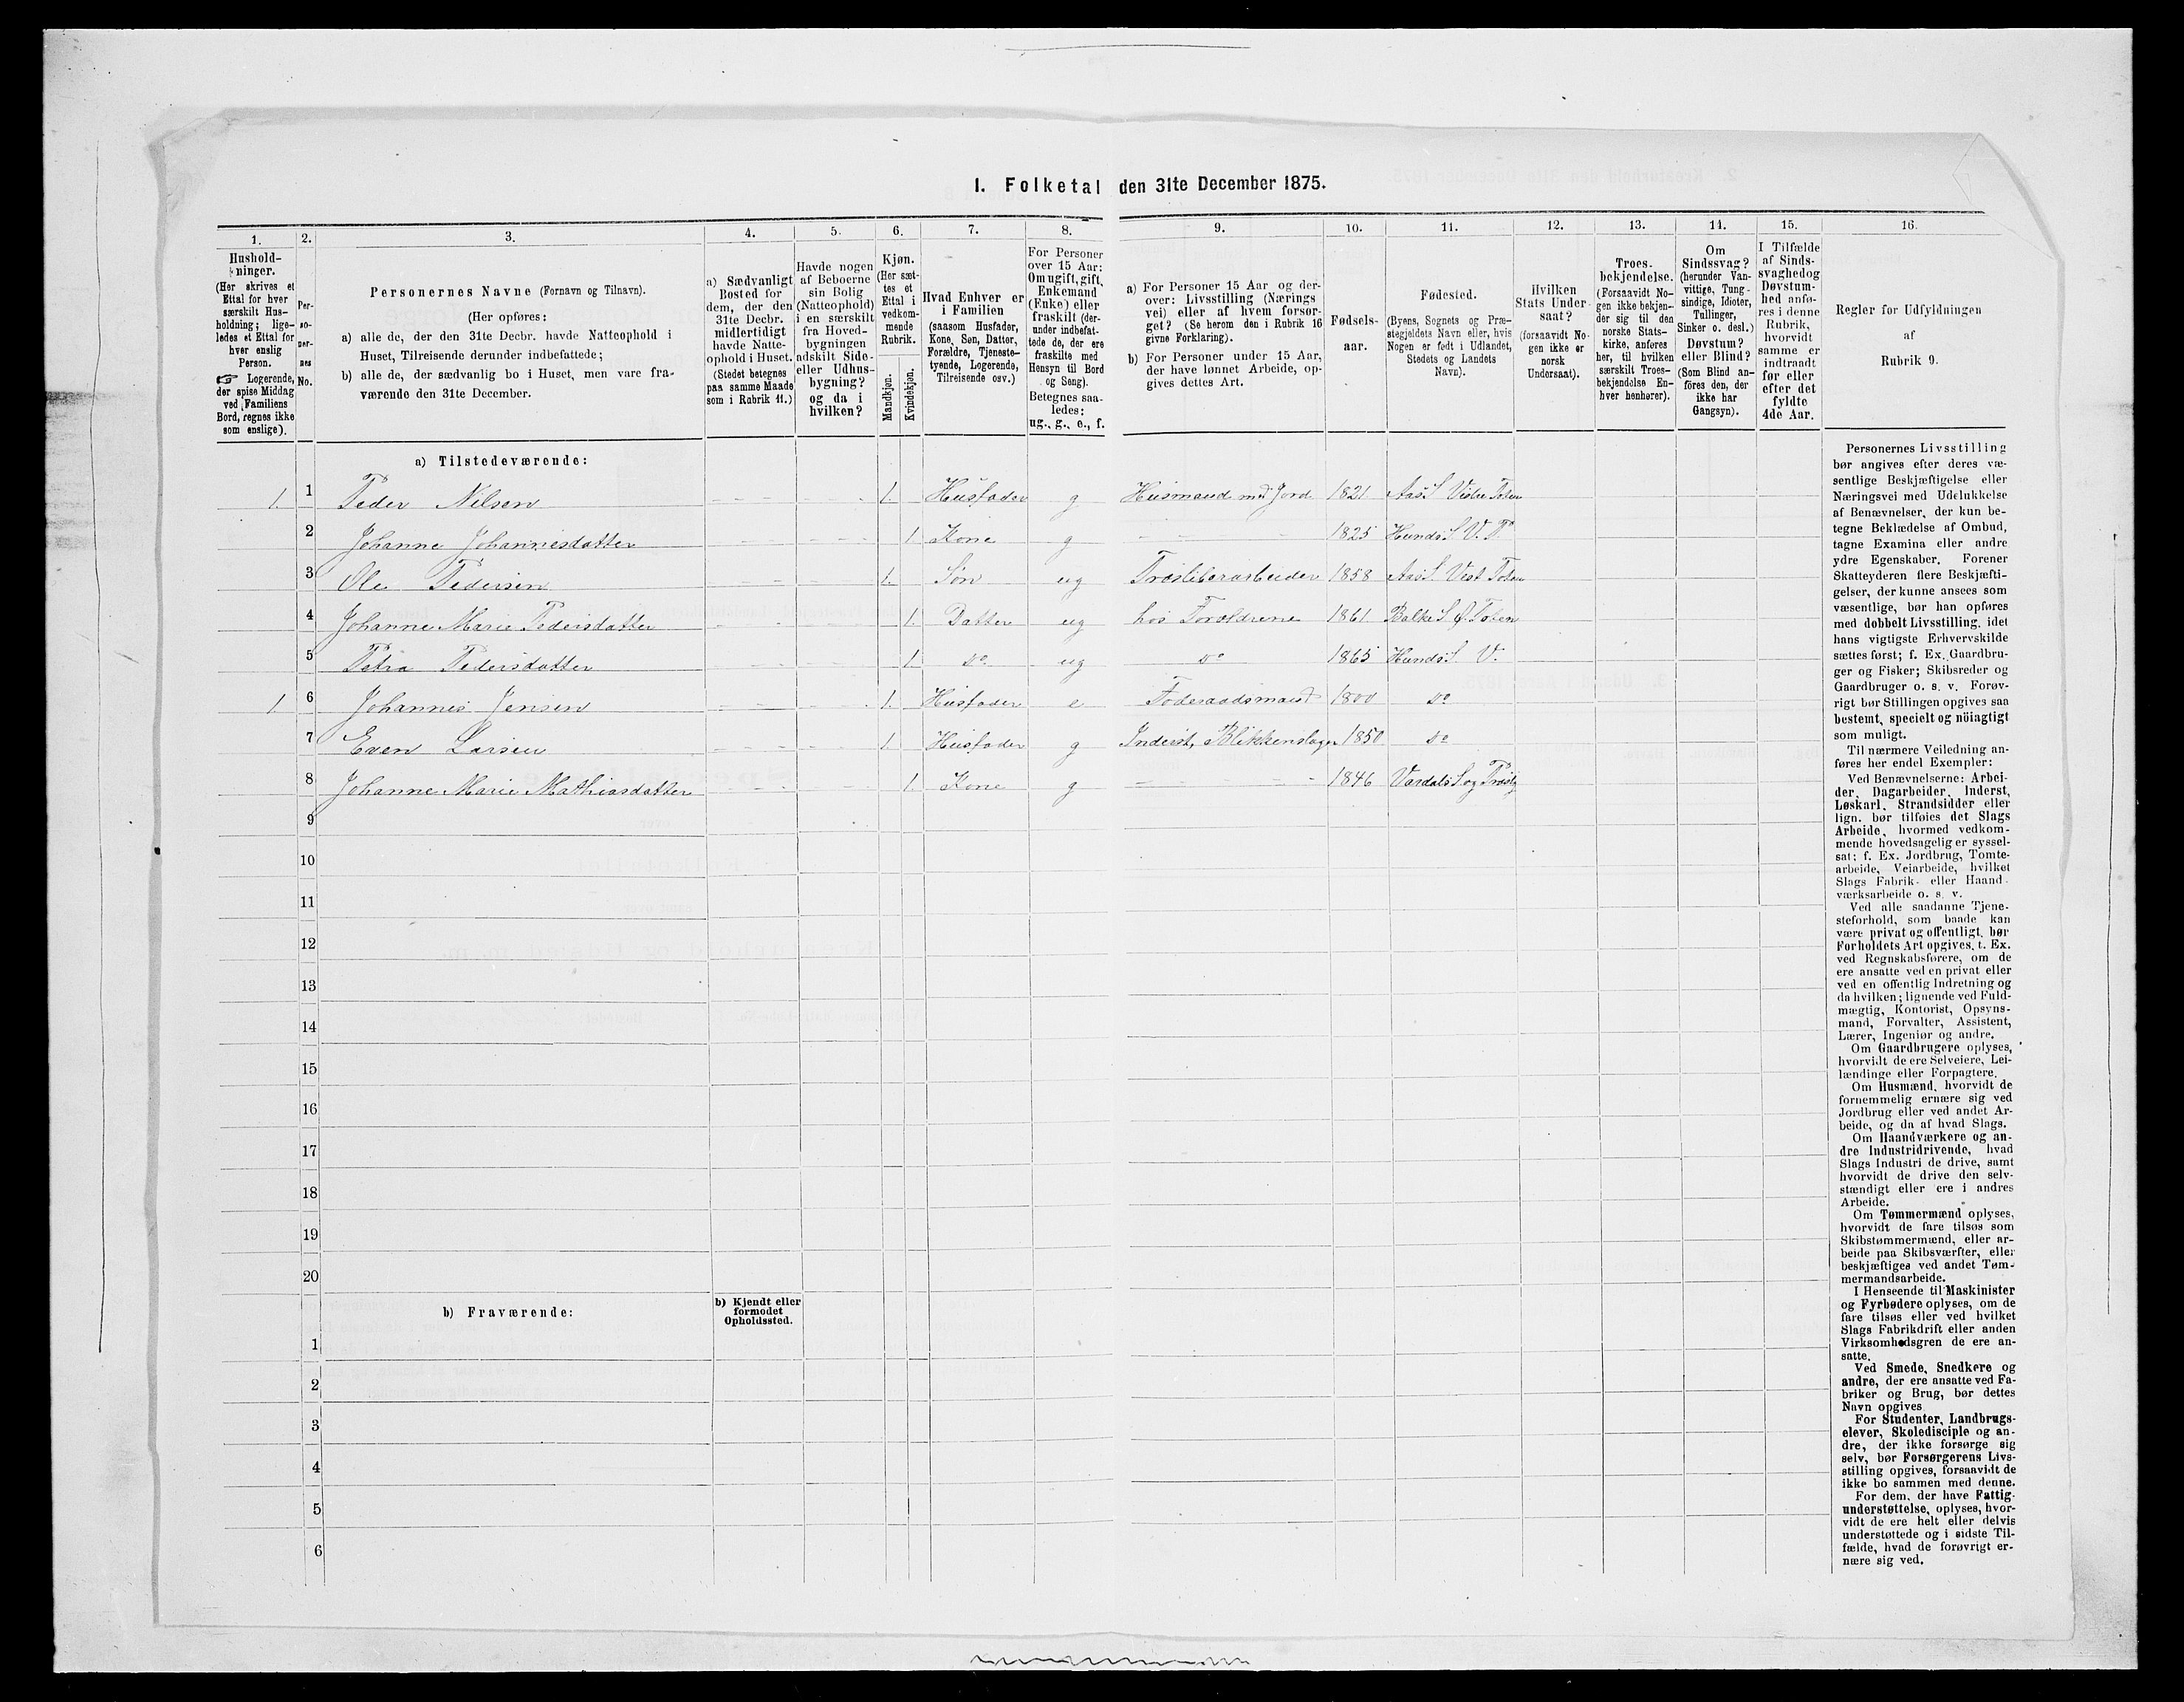 I. Folketal den 31te December 1875.
1. 2. 3. 4. 5. 6. 7. 8. 9. 10. 11. 12. 13. 14. 15. 16.
Hushold-
ninger.
(Her skrives et
Ettal for hver
særskilt Hus-
holdning; lige-
ledes et Ettal for
hver enslig
Person.
☞ Logerende,
der spise Middag
ved Familiens
Bord, regnes ikke
som enslige).
Per-
so-
ner-
nes
No.
Personernes Navne (Fornavn og Tilnavn).
(Her opføres:
a) alle de, der den 31te Decbr. havde Natteophold i
Huset, Tilreisende derunder indbefattede;
b) alle de, der sædvanlig bo i Huset, men vare fra-
værende den 31te December.
a) Sædvanligt
Bosted for
dem, der den
31te Decbr.
midlertidigt
havde Natte-
ophold i Huset.
(Stedet betegnes
paa samme Maade
som i Rubrik 11.)
Havde nogen
af Beboerne
sin Bolig
(Natteophold)
i en særskilt
fra Hoved-
bygningen
adskilt Side-
eller Udhus-
bygning?
og da i
hvilken?
Kjøn.
(Her sæt-
tes et
Ettal i
vedkom-
mende
Rubrik.
Mandkjøn.
Kvindekjøn.
Hvad Enhver er
i Familien
(saasom Husfader,
Kone, Søn, Datter,
Forældre, Tjeneste-
tyende, Logerende,
Tilreisende osv.)
For Personer
over 15 Aar:
Om ugift, gift,
Enkemand
(Enke) eller
fraskilt (der-
under indbefat-
tede de, der ere
fraskilte med
Hensyn til Bord
og Seng).
Betegnes saa-
ledes:
ug., g., e., f.
a) For Personer 15 Aar og der-
over: Livsstilling (Nærings
vei) eller af hvem forsør-
get? (Se herom den i Rubrik 16
givne Forklaring).
b) For Personer under 15 Aar,
der have lønnet Arbeide, op-
gives dettes Art.
Fødsels-
aar.
Fødested.
(Byens, Sognets og Præ-
stegjeldets Navn eller, hvis
Nogen er født i Udlandet,
Stedets og Landets
Navn).
Hvilken
Stats Under-
saat?
(forsaavidt No-
gen ikke er
norsk
Undersaat).
Troes-
bekjendelse.
(Forsaavidt No-
gen ikke bekjen-
der sig til den
norske Stats-
kirke, anføres
her, til hvilken
særskilt Troes-
bekjendelse En-
hver henhører).
Om
Sindssvag?
(herunder Van-
vittige, Tung-
sindige, Idioter,
Tullinger,
Sinker o. desl.)
Døvstum?
eller Blind?
(Som Blind an-
föres den, der
ikke har
Gangsyn).
I Tilfælde
af Sinds-
svaghed og
Døvstum-
hed anfø-
res i denne
Rubrik,
hvorvidt
samme er
indtraadt
før eller
efter det
fyldte
4de Aar.
Regler for Udfyldningen
af
Rubrik 9.
a) Tilstedeværende:
1. 1 Peder Nilsen 1. Husfader g Husmand med Jord 1821 Aas S. Vestre Toten
2 Johanne Johannesdatter 1 Kone g 1825 Hunds S. V. T.
3 Ole Pedersen 1. Søn ug Træsliberarbeider 1858 Aas S. Vest Toten
4 Johanne Marie Pedersdatter 1. Datter ug hos Forældrene 1861 Balke S. Ø. Toten
5 Petra Pedersdatter 1. do ug do 1865 Hunds S. V.
1 6 Johannes Jensen 1. Husfader e Føderaadsmand 1800 do
7 Even Larsen 1. Husfader g Inderst, Blikkenslager 1850 do
8 Johanne Marie Mathiasdatter 1. Kone g 1846 Vardals S. og Præstg
9
10
11
12
13
14
15
16
17
18
19
20
b) Fraværende:
b) Kjendt eller
formodet
Opholdssted.
1
2
3
4
5
6
Personernes Livsstilling
bør angives efter deres væ-
sentlige Beskjæftigelse eller
Næringsvei med Udelukkelse
af Benævnelser, der kun be-
tegne Beklædelse af Ombud,
tagne Examina eller andre
ydre Egenskaber. Forener
Skatteyderen flere Beskjæfti-
gelser, der kunne ansees som
væsentlige, bør han opføres
med dobbelt Livsstilling, idet
hans vigtigste Erhvervskilde
sættes først; f. Ex. Gaardbru-
ger og Fisker; Skibsreder og
Gaardbruger o. s. v. Forøv-
rigt bør Stillingen opgives saa
bestemt, specielt og nöiagtigt
som muligt.
Til nærmere Veiledning an-
føres her endel Exempler:
Ved Benævnelserne: Arbei-
der, Dagarbeider, Inderst,
Løskarl, Strandsidder eller
lign. bør tilføies det Slags
Arbeide, hvormed vedkom-
mende hovedsagelig er syssel-
sat; f. Ex. Jordbrug, Tomte-
arbeide, Veiarbeide, hvilket
Slags Fabrik- eller Haand-
værksarbeide o. s. v.
Ved alle saadanne Tjene-
steforhold, som baade kan
være privat og offentligt, bør
Forholdets Art opgives, t. Ex.
ved Regnskabsførere, om de
ere ansatte ved en privat eller
ved en offentlig Indretning og
da hvilken; lignende ved Fuld-
mægtig, Kontorist, Opsyns-
mand, Forvalter, Assistent,
Lærer, Ingeniør og andre.
Om Gaardbrugere oplyses,
hvorvidt de ere Selveiere, Lei-
lændinge eller Forpagtere.
Om Husmænd, hvorvidt de
fornemmelig ernære sig ved
Jordbrug eller ved andet Ar-
beide, og da af hvad Slags.
Om Haandværkere og an-
dre Industridrivende, hvad
Slags Industri de drive, samt
hvorvidt de drive den selv-
stændigt eller ere i andres
Arbeide.
Om Tømmermænd oplyses,
hvorvidt de fare tilsøs som
Skibstømmermænd, eller ar-
beide paa Skibsværfter, eller
beskjæftiges ved andet Tøm-
mermandsarbeide.
I Henseende til Maskinister
og Fyrbødere oplyses, om de
fare tilsøs eller ved hvilket
Slags Fabrikdrift eller anden
Virksomhedsgren de ere an-
satte.
Ved Smede, Snedkere og
andre, der ere ansatte ved Fa-
briker og Brug, bør dettes
Navn opgives
For Studenter, Landbrugs-
elever, Skoledisciple og an-
dre, der ikke forsørge sig
selv, bør Forsørgerens Livs-
stilling opgives, forsaavidt de
ikke bo sammen med denne.
For dem, der have Fattig-
understøttelse, oplyses, hvor-
vidt de ere helt eller delvis
understøttede og i sidste Til-
fælde, hvad de forøvrigt er-
nære sig ved.